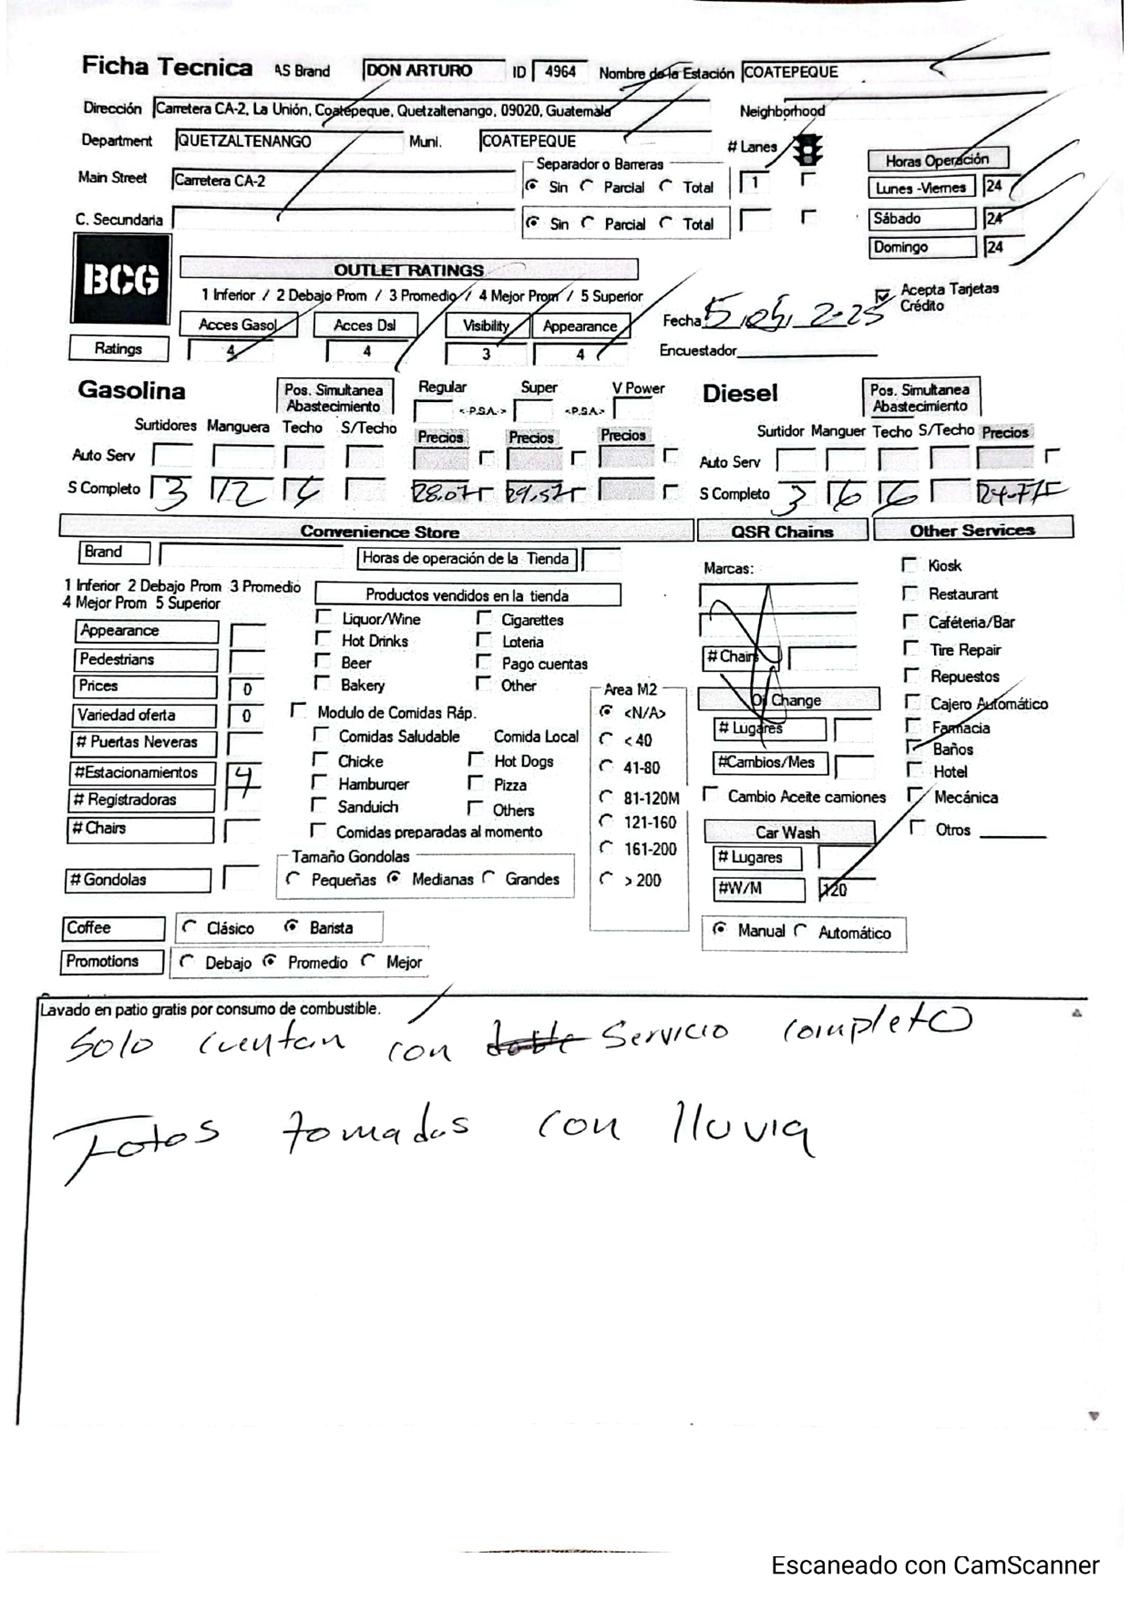 Ficha Tecnica AS Brand DON ARTURO ID 4964 Nombre de la Estación COATEPEQUE
Dirección Carretera CA-2, La Unión, Coatepeque, Quetzaltenango, 09020, Guatemala Neighborhood
Department QUETZALTENANGO Muni. COATEPEQUE # Lanes
Main Street Carretera CA-2 Separador o Barreras Sin Parcial Total 1
C. Secundaria Sin Parcial Total
Horas Operación
Lunes -Viernes 24
Sábado 24
Domingo 24
BCG
OUTLET RATINGS
1 Inferior / 2 Debajo Prom / 3 Promedio / 4 Mejor Prom / 5 Superior
Acces Gasol Acces Dsl Visibility Appearance
Ratings 4 4 3 4
Acepta Tarjetas
Crédito
Fecha
Encuestador
Gasolina Pos. Simultanea
Abastecimiento
Regular Super V Power
<-P.S.A.-> <-P.S.A.->
Surtidores Manguera Techo S/Techo Precios Precios Precios
Auto Serv
S Completo 3 12 28.07 29.57
Diesel Pos. Simultanea
Abastecimiento
Surtidor Manguer Techo S/Techo Precios
Auto Serv
S Completo 3 6 6
Convenience Store QSR Chains Other Services
Brand Horas de operación de la Tienda
1 Inferior 2 Debajo Prom 3 Promedio
4 Mejor Prom 5 Superior
Appearance
Pedestrians
Prices 0
Variedad oferta 0
# Puertas Neveras
#Estacionamientos 4
# Registradoras
# Chairs
# Gondolas
Productos vendidos en la tienda
Liquor/Wine Cigarettes
Hot Drinks Loteria
Beer Pago cuentas
Bakery Other
Modulo de Comidas Ráp.
Comidas Saludable Comida Local
Chicke Hot Dogs
Hamburger Pizza
Sanduich Others
Comidas preparadas al momento
Tamaño Gondolas
Pequeñas Medianas Grandes
Area M2
<N/A>
< 40
41-80
81-120M
121-160
161-200
> 200
Marcas:
# Chairs
Oil Change
# Lugares
#Cambios/Mes
Cambio Aceite camiones
Car Wash
# Lugares
#W/M 120
Manual Automático
Kiosk
Restaurant
Caféteria/Bar
Tire Repair
Repuestos
Cajero Automático
Farmacia
Baños
Hotel
Mecánica
Otros
Coffee Clásico Barista
Promotions Debajo Promedio Mejor
Lavado en patio gratis por consumo de combustible.
Solo cuentan con Servicio completo
Fotos tomadas con lluvia
Escaneado con CamScanner